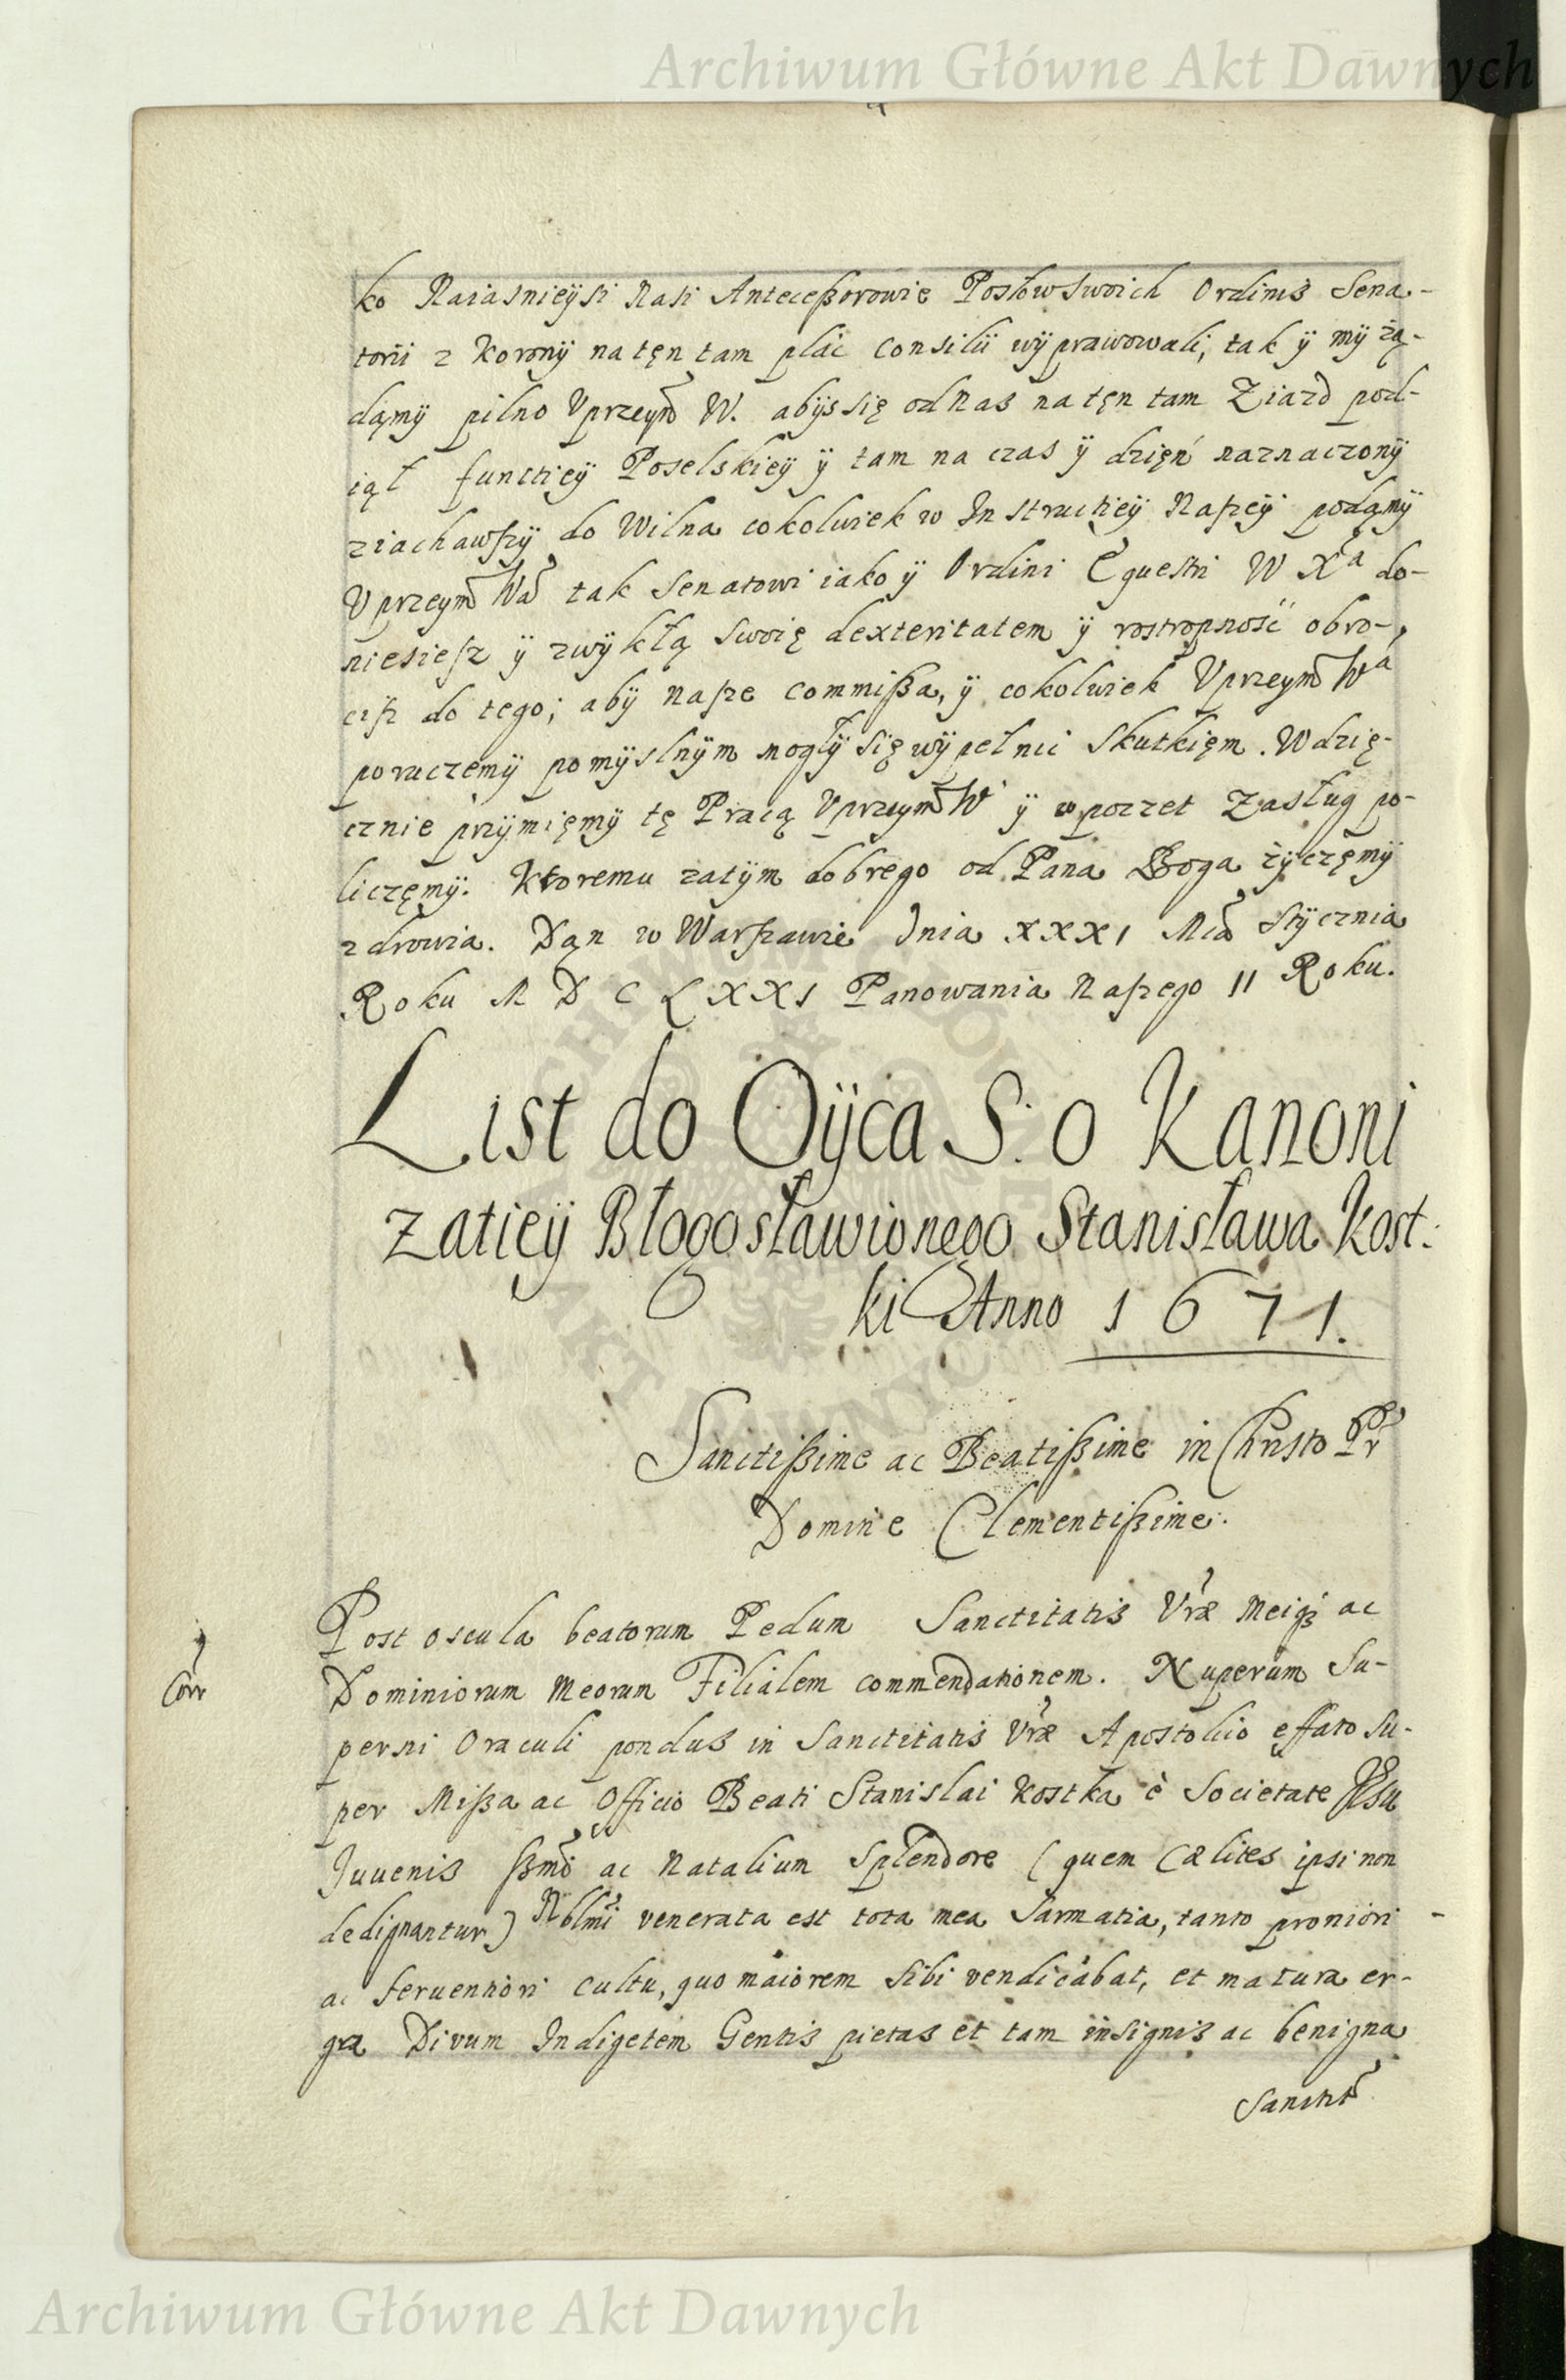 Archiwum Główne Akt Dawnych
ko Naiasnieÿsi Nasi Anteceßorowie Posłow swoich Ordinis Sena-
torii z Koronÿ na tęn tam plác Consilii wÿprawowali, tak ÿ mÿ żą-
dąmÿ pilno Uprzeym W. abÿs się od Nas na tęn tam Ziazd pod-
iął functieÿ Poselskieÿ ÿ tam na czas ÿ dzięń naznaczonÿ
ziachawszÿ do Wilna cokolwiek w Instructieÿ Naszeÿ podąmÿ
Uprzeym Wa tak Senatowi iako ÿ Ordini Equestri W Xa do-
niesiesz ÿ zwÿkłą swoię dexteritatem ÿ rostropność obro-
cisz do tego; abÿ nasze Commißa, ÿ cokolwiek Uprzeym Wa
poruczemÿ pomÿslnÿm mogłÿ się wÿpełnić skutkięm. Wdzię-
cznie prziÿmięmÿ tę Pracą Uprzeym W ÿ w poczet Zasług po-
liczęmÿ. Ktoremu zatÿm dobrego od Pana Boga żÿczęmÿ
zdrowia. Dąn w Warszawie Dnia XXXI Mca Stÿcznia
Roku M D C L X X I Panowania Naszego II Roku.
List do Oÿca S. o Kanoni
zatieÿ Błogosławionego Stanisława Kost:
ki Anno 1671.
Sanctißime ac Beatißime in Christo Pr
Domine Clementißime.
Post oscula beatorum Pedum Sanctitatis Vræ Meiqz ac
Corr
Dominiorum Meorum Filialem commendationem. Nuperum Su-
perni Oraculi pondus in Sanctitatis Vræ Apostolico effato su-
per Mißa ac Officio Beati Stanislai Kostka è Societate Jesu
Juvenis ßmi ac Natalium Splendore (quem Cælites ipsi non
dedignantur) Nblmi venerata est tota mea Sarmatia, tanto proniori
ac ferventiori cultu, quo maiorem sibi vendicabat, et matura er-
ga Divum Indigetem Gentis pietas et tam insignis ac benigna
Sanctit
Archiwum Główne Akt Dawnych